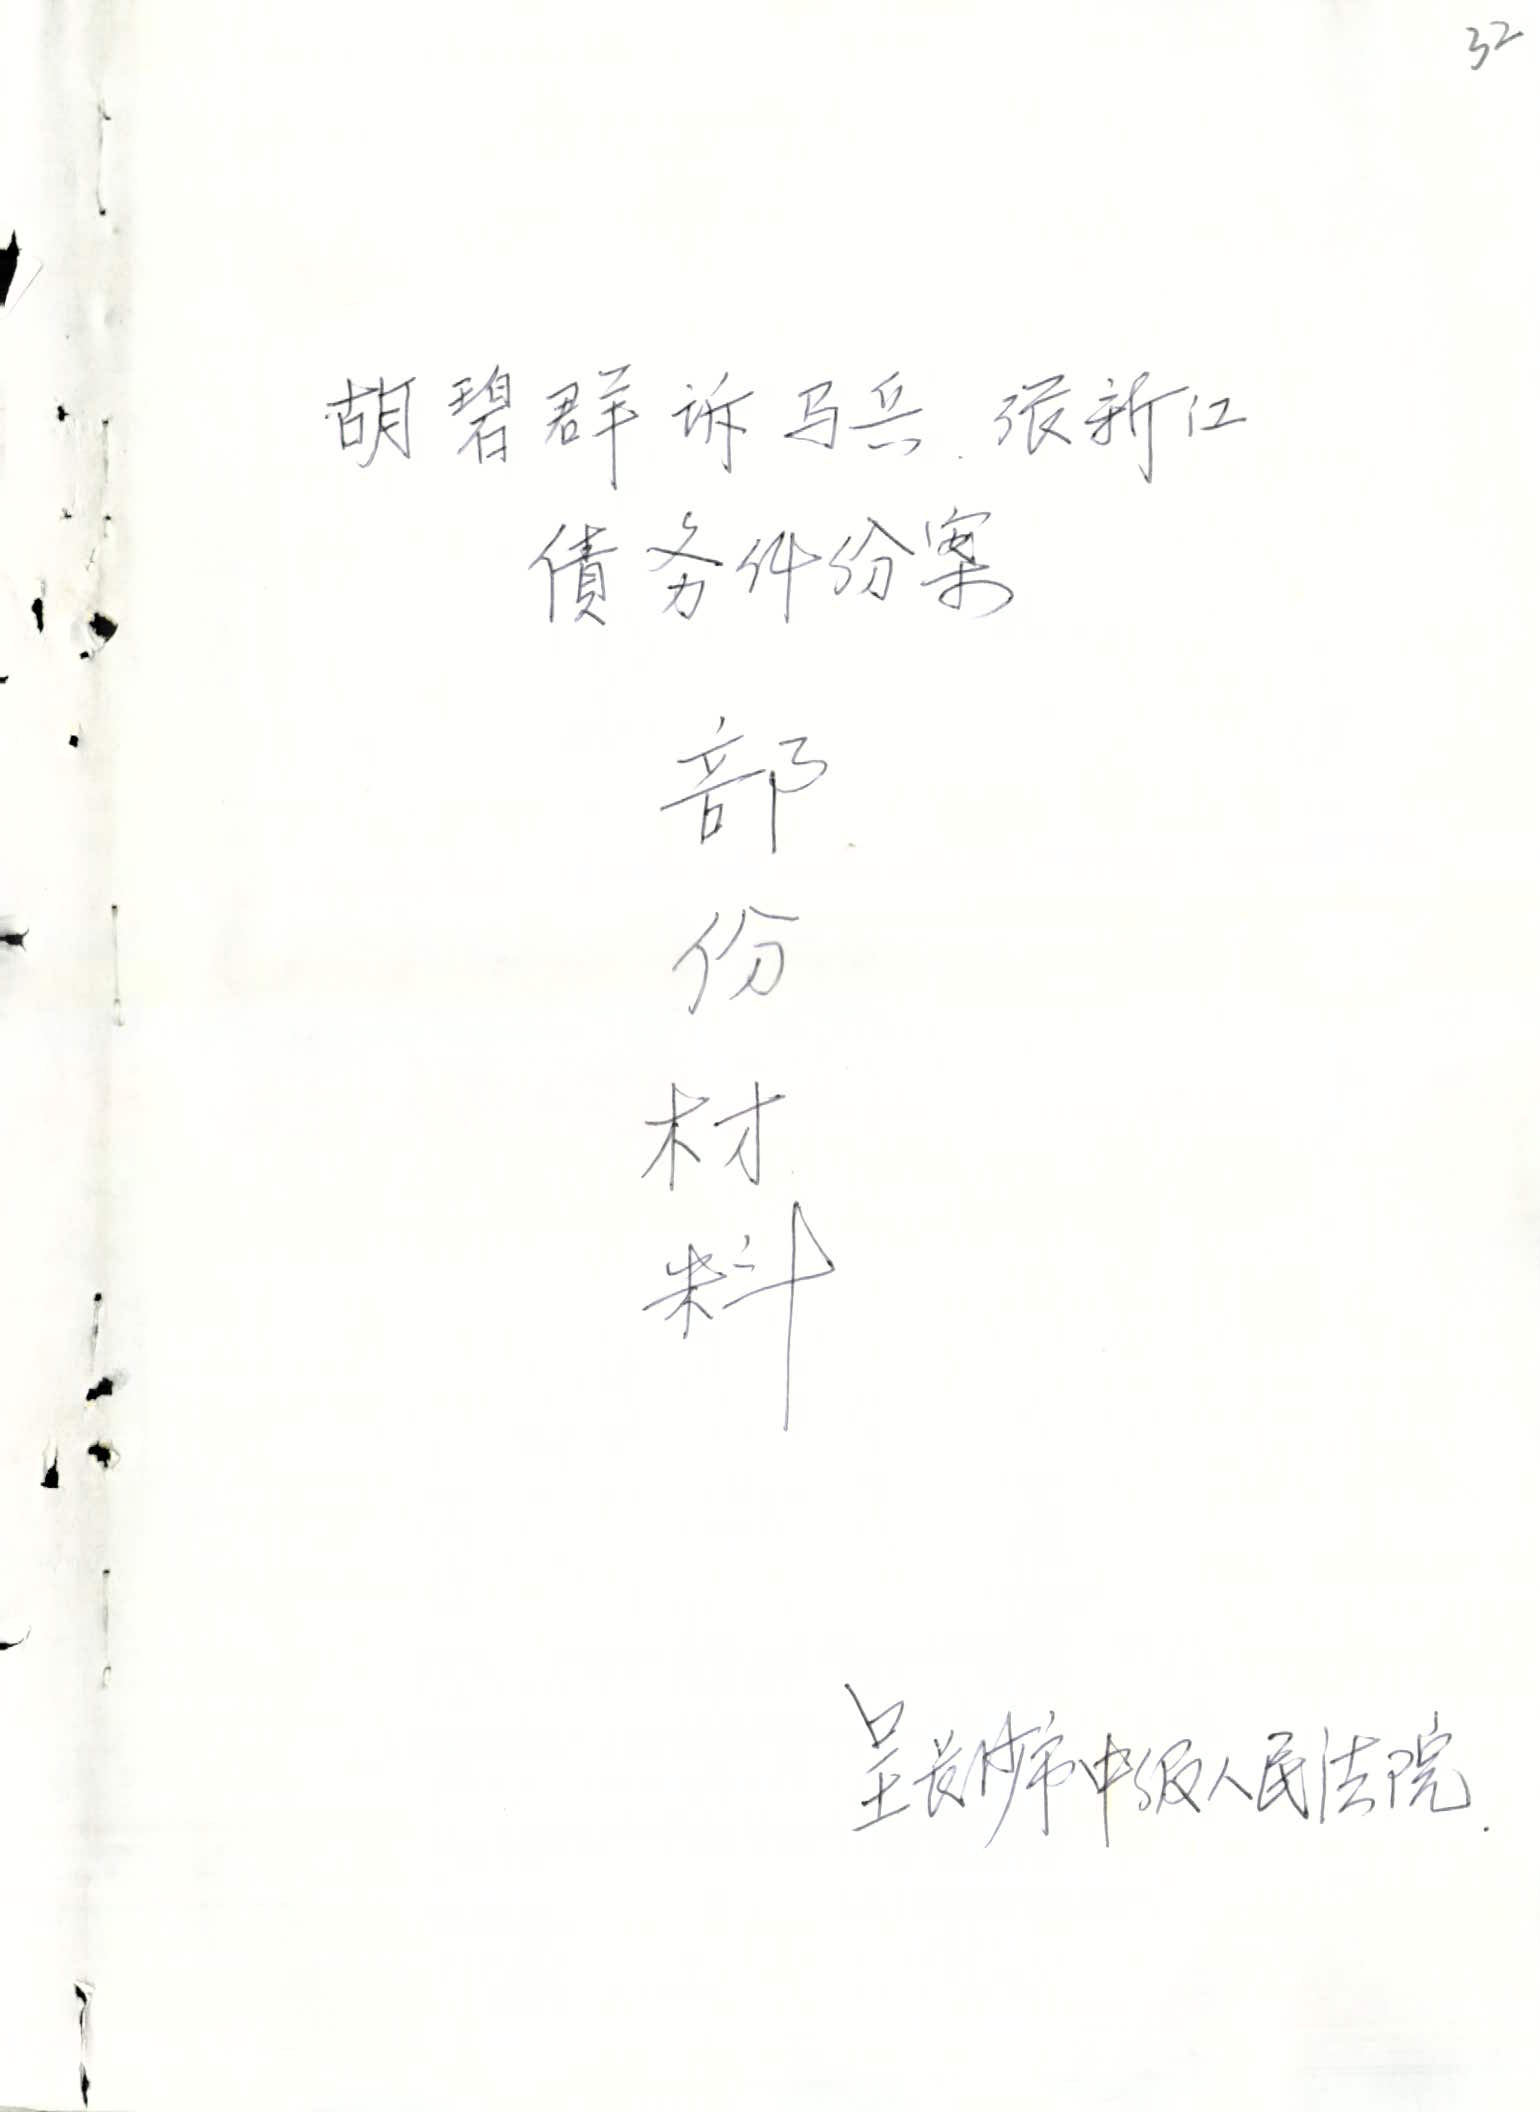 32
胡碧群诉马兵.张新江
債务件份案
部
份
材
料
呈长沙市中级人民法院.